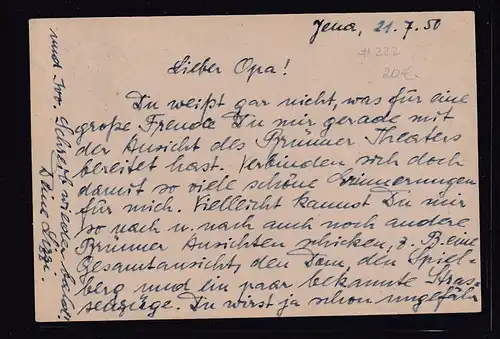 Jena, 21.7.50
#222
20€
Lieber Opa!
Du weißt gar nicht, was für eine
große Freude Du mir gerade mit
der Ansicht des Brünner Theaters
bereitet hast. Verbinden sich doch
damit so viele schöne Erinnerungen
für mich. Vielleicht kannst Du mir
so nach u. nach auch noch andere
Brünner Ansichten schicken, z. B. eine
Gesamtansicht, den Dom, den Spiel-
berg und ein paar bekannte Stras-
senzüge. Du wirst ja schon ungefähr
und Ivo. Schreib wieder bald!
Deine